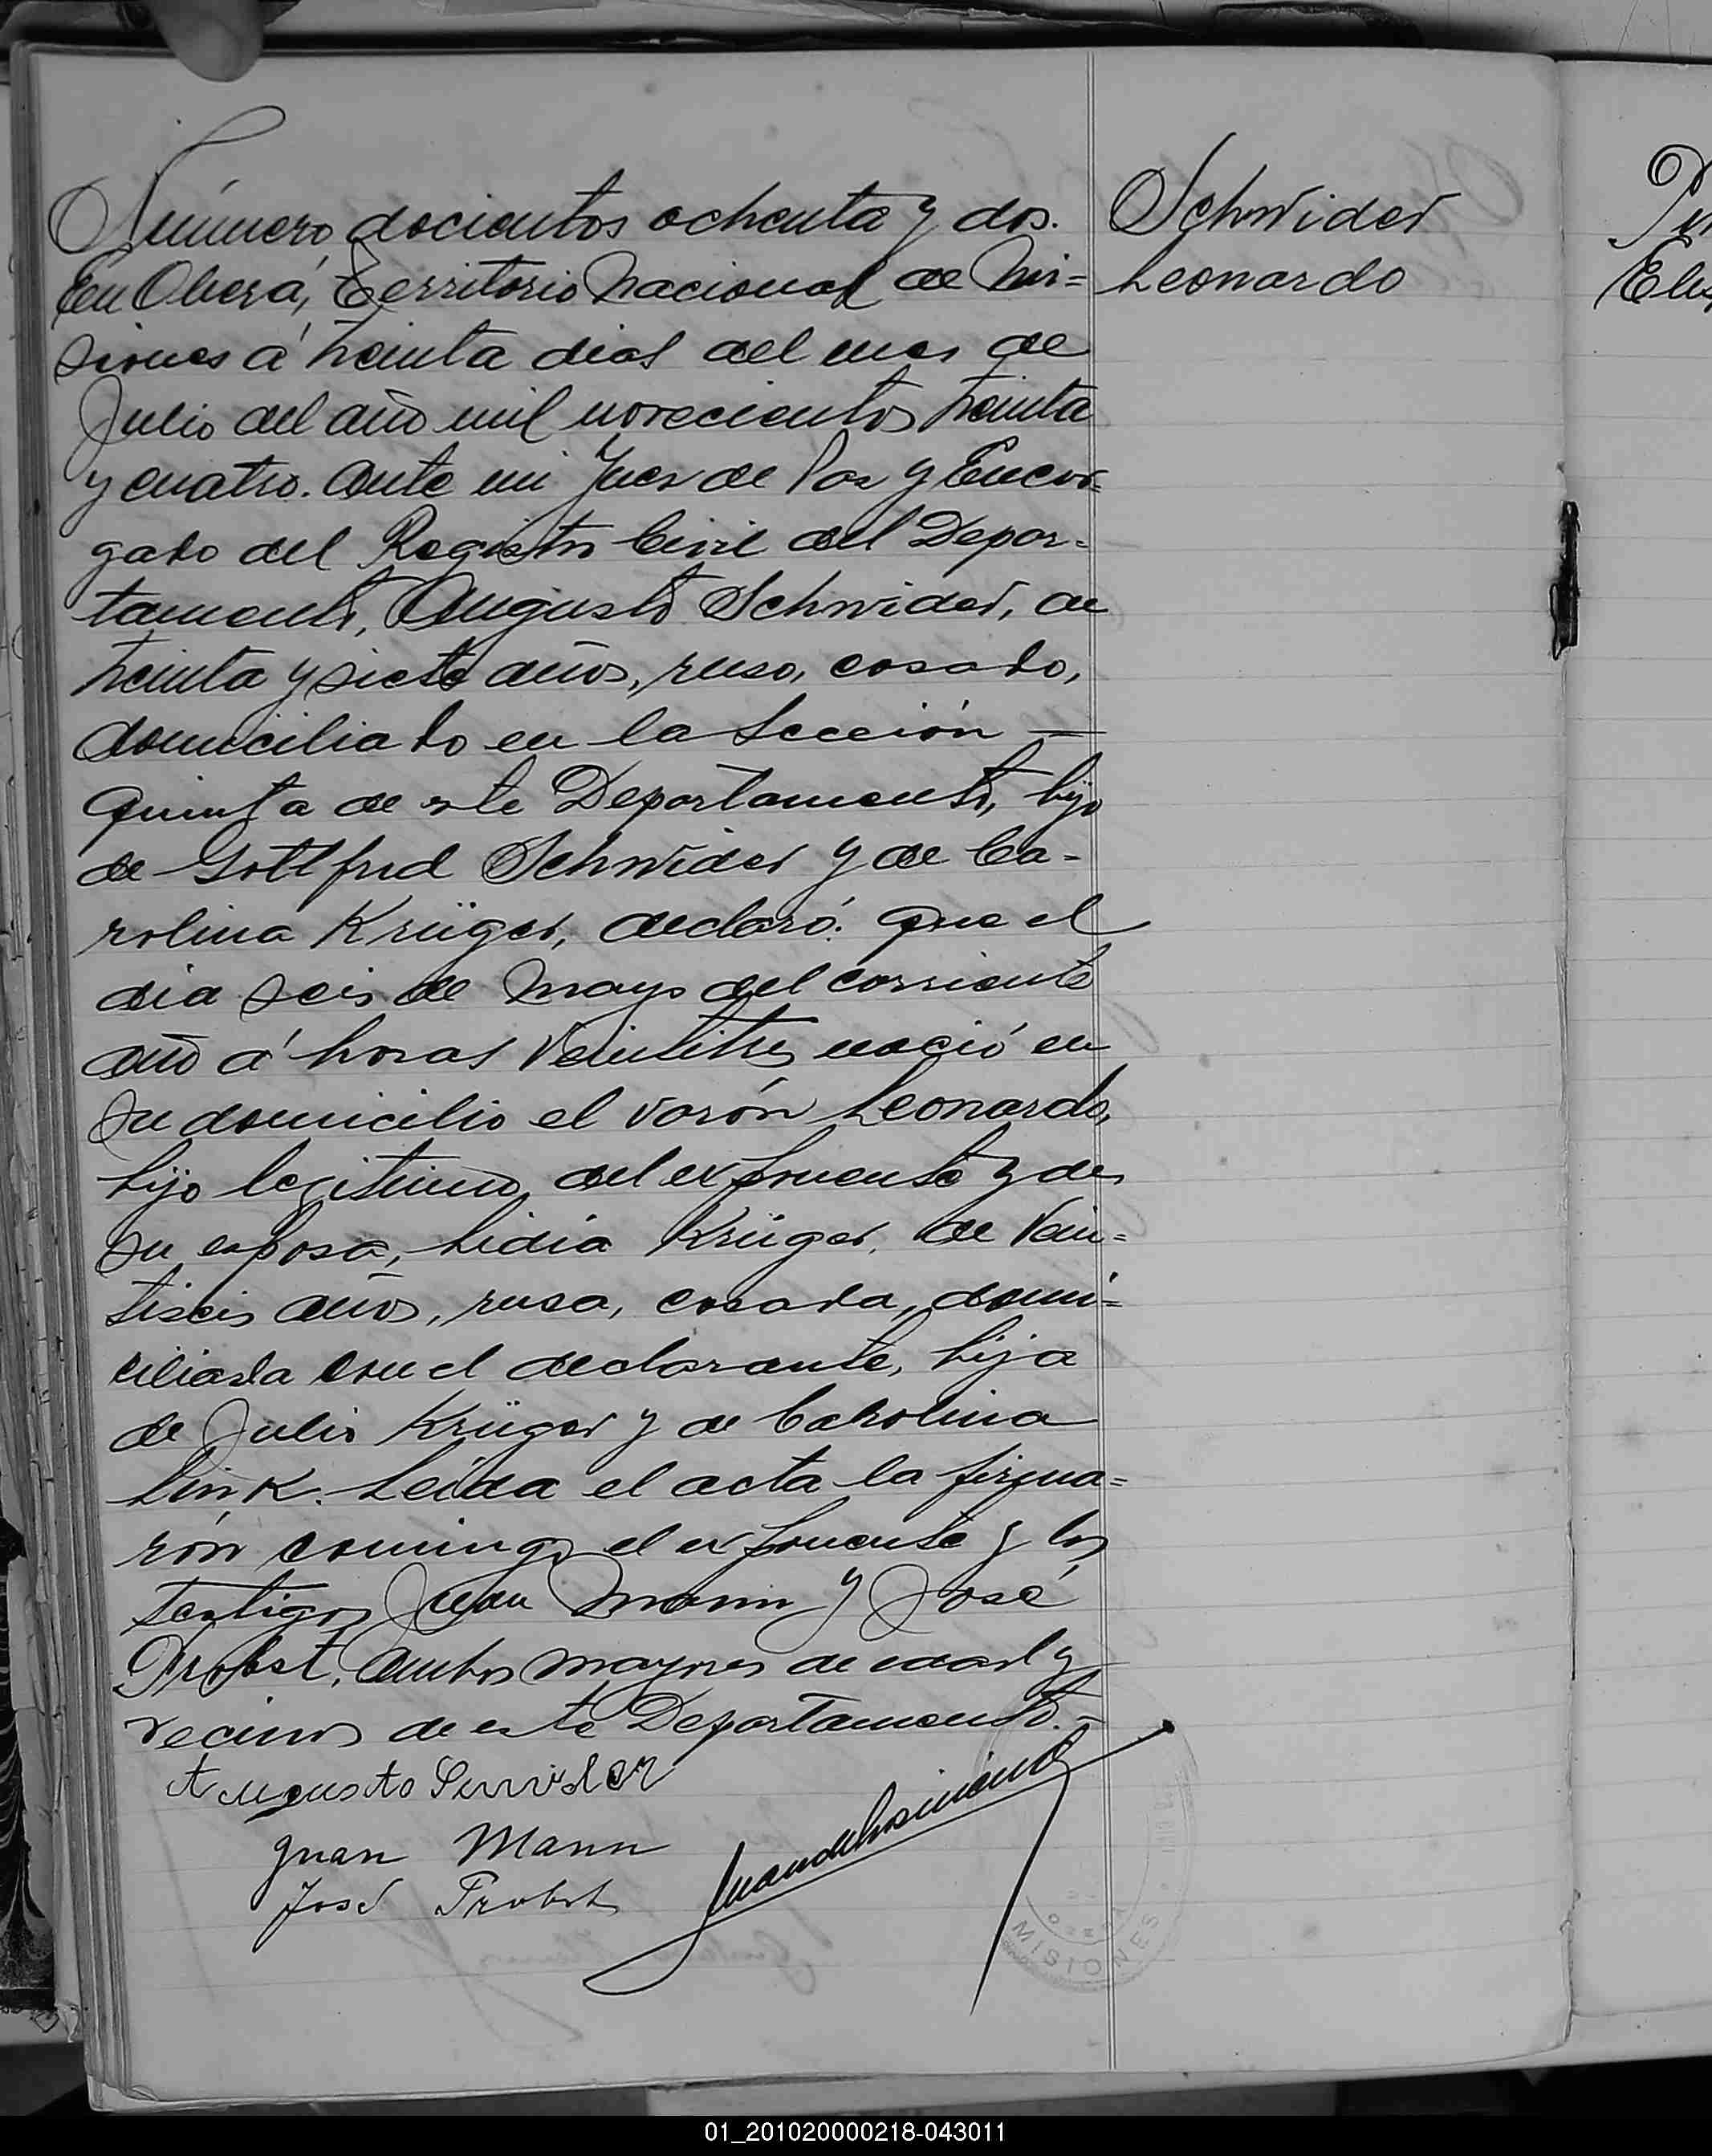 Número docientos ochenta y dos.
En Oberá, Territorio Nacional de Mi=
siones á treinta dias del mes de
Julio del año mil novecientos treinta
y cuatro. Ante mi Juez de Paz y Encar=
gado del Registro Civil del Depar=
tamento, Augusto Schwider, de
treinta y siete años, ruso, casado,
domiciliado en la Sección —
Quinta de este Departamento, hijo
de Gottfried Schwider y de Ca=
rolina Krüger, declaró: Que el
dia seis de Mayo del corriente
año á horas veintitres nació en
su domicilio el varón Leonardo,
hijo legitimo del exponente y de
su esposa, Lidia Krüger, de vein=
tiseis años, rusa, casada, domi=
ciliada con el declarante, hija
de Julio Krüger y de Carolina
Link. Leída el acta la firma=
rón conmigo el exponente y los
testigos Juan Mann y José
Probst, ambos mayores de edad y
vecinos de este Departamento.=
Augusto
Juan Mann
José Probst
Schwider
Leonardo
MISIONES
01_201020000218-043011